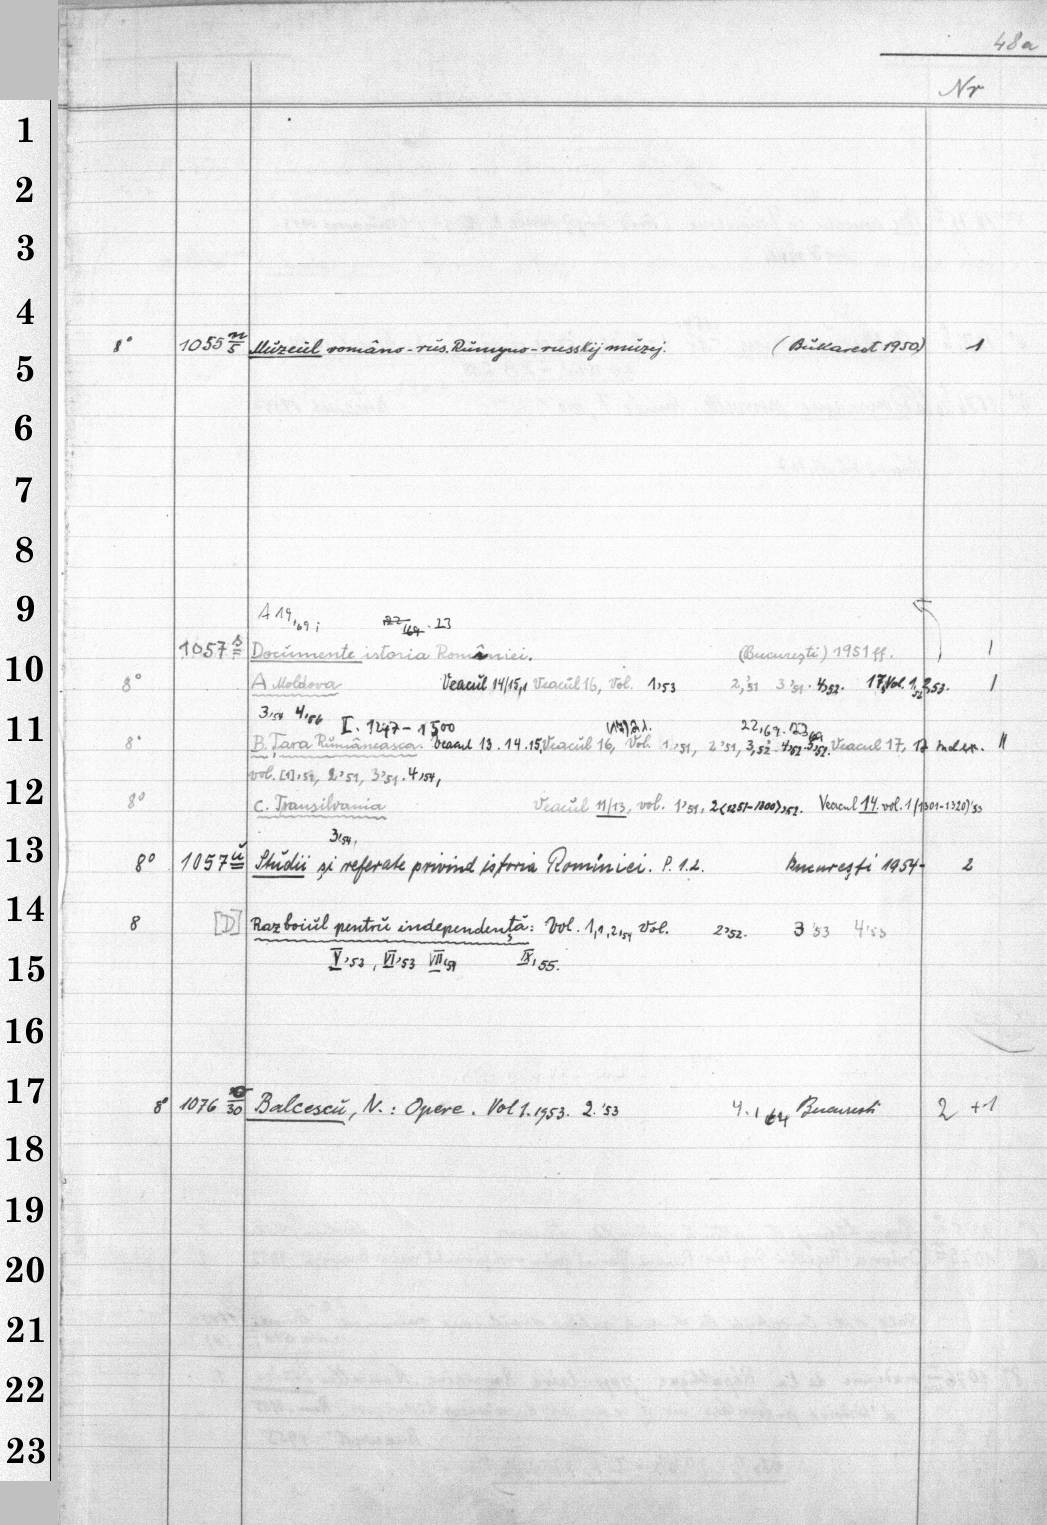 48a
Nr
1
2
3
4
8° 1055 n/5 Muzeul româno-rus. Rumyno-russkij muzej. (Bukarest 1950) 1
5
6
7
8
9
A 19,'69; 23
1057 s Documente istoria României. (Bucureşti) 1951 ff. 1
10
8° A Moldova Veacul 14/15,1 Veacul 16, Vol. 1,'53 2,'51 3,'51. 4,'52. 17, Vol. 1,'52 2,'53. 1
3,'54 4,'56 I. 1247-1500 22,'69. 23
11
8° B. Ţara Rumânească. Veacul 13. 14. 15, Veacul 16, Vol. 1,'51, 2,'51, 3,'52. 4,'52. 5,'52. Veacul 17, Index. II
vol. [1],'51, 2,'51, 3,'51. 4,'54,
12
8° C. Transilvania Veacul 11/13, vol. 1,'51, 2(1251-1300),'52. Veacul 14. vol. 1(1301-1320)'53
3,'54,
13
8° 1057 u Studii şi referate privind istoria Romîniei. P. 1.2. Bucureşti 1954- 2
14
8 [D] Razboiul pentru independenţă: Vol. 1,1,2,'54 Vol. 2'52. 3'53 4'53
15
V,'53, VI,'53 VII,'54 IX,'55.
16
17
8° 1076 /30 Balcescu, N.: Opere. Vol 1. 1953. 2.'53 4.,64 Bucuresti 2 +1
18
19
20
21
22
23